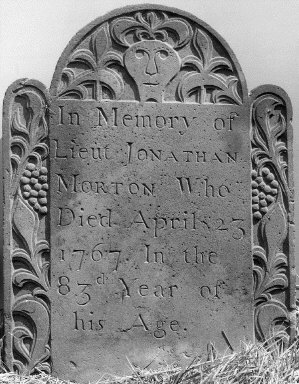 In Memory of
Lieut JONATHAN
MORTON Who
Died April 23
1767 In the
83d Year of
his Age.